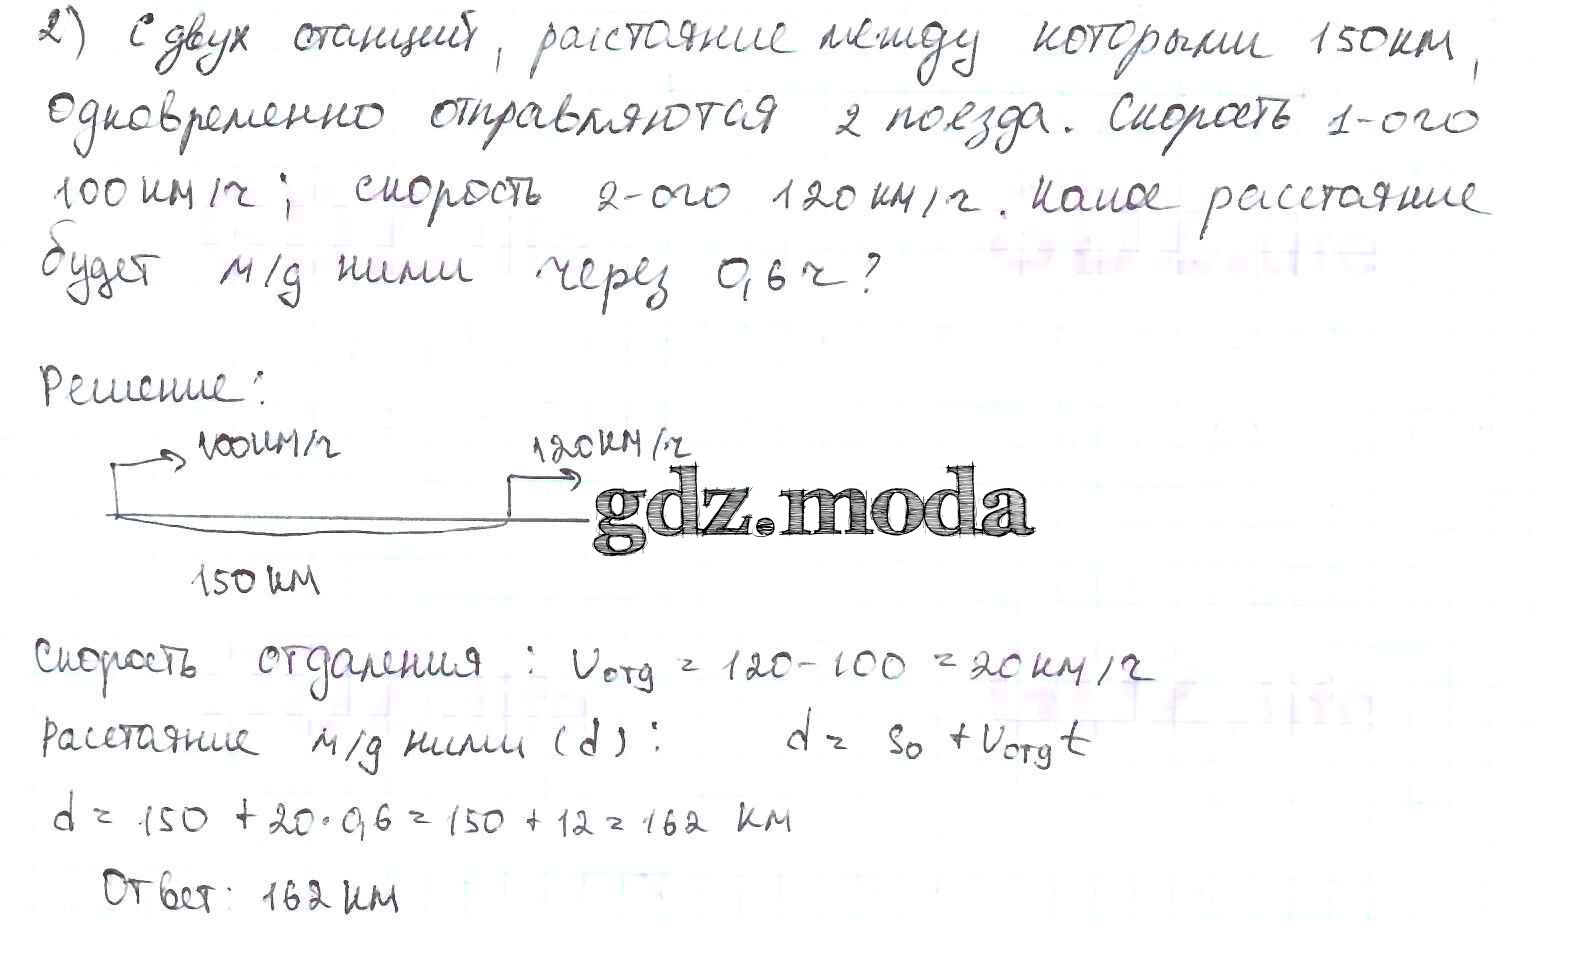 2) С двух станций, расстояние между которыми 150км,
одновременно отправляются 2 поезда. Скорость 1-ого
100км/ч; скорость 2-ого 120км/ч. Какое расстояние
будет м/д ними через 0,6ч?
Решение:
100км/ч 120км/ч
gdz.moda
150км
Скорость отдаления: Vотд = 120-100 = 20км/ч
Расстояние м/д ними (d): d = S₀ + Vотд t
d = 150 + 20·0,6 = 150 + 12 = 162 км
Ответ: 162км